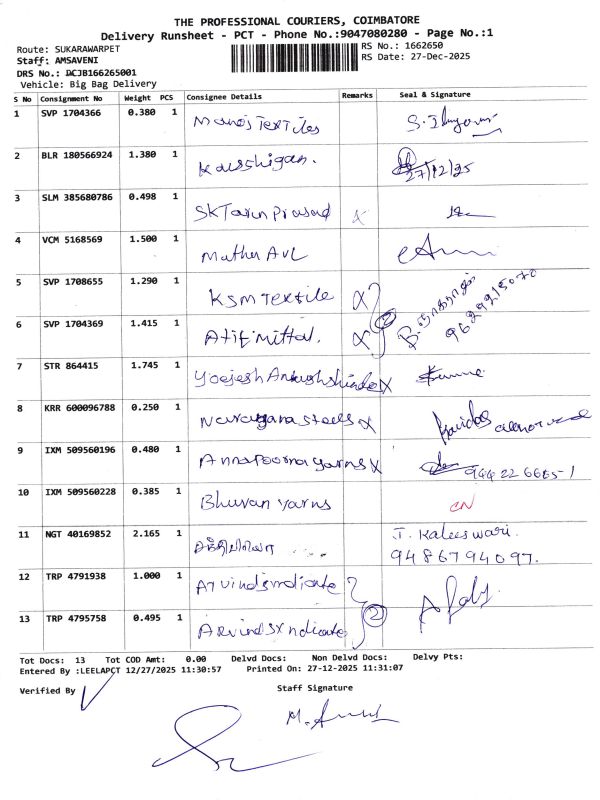 THE PROFESSIONAL COURIERS, COIMBATORE
Delivery Runsheet - PCT - Phone No.:9047080280 - Page No.:1
Route: SUKARAWARPET
RS No.: 1662650
Staff: AMSAVENI
RS Date: 27-Dec-2025
DRS No.: DCJB166265001
Vehicle: Big Bag Delivery
S No Consignment No Weight PCS Consignee Details Remarks Seal & Signature
1 SVP 1704366 0.380 1 Manoj Textiles
2 BLR 180566924 1.380 1 Kausshigan. 27/12/25
3 SLM 385680786 0.498 1 SK Tarun Prasad x
4 VCM 5168569 1.500 1
5 SVP 1708655 1.290 1 KSM Textile x
6 SVP 1704369 1.415 1 Atif mittal. x 2 9629215070
7 STR 864415 1.745 1 x
8 KRR 600096788 0.250 1 Narayana steels x
9 IXM 509560196 0.480 1 Annapoorna yarns x
10 IXM 509560228 0.385 1 Bhuvan yarns
11 NGT 40169852 2.165 1 J. Kaleeswari. 9486794097.
12 TRP 4791938 1.000 1 Arvind Syndicate
13 TRP 4795758 0.495 1 Arvind Syndicate 2
Tot Docs: 13 Tot COD Amt: 0.00 Delvd Docs: Non Delvd Docs: Delvy Pts:
Entered By :LEELAPCT 12/27/2025 11:30:57 Printed On: 27-12-2025 11:31:07
Verified By
Staff Signature